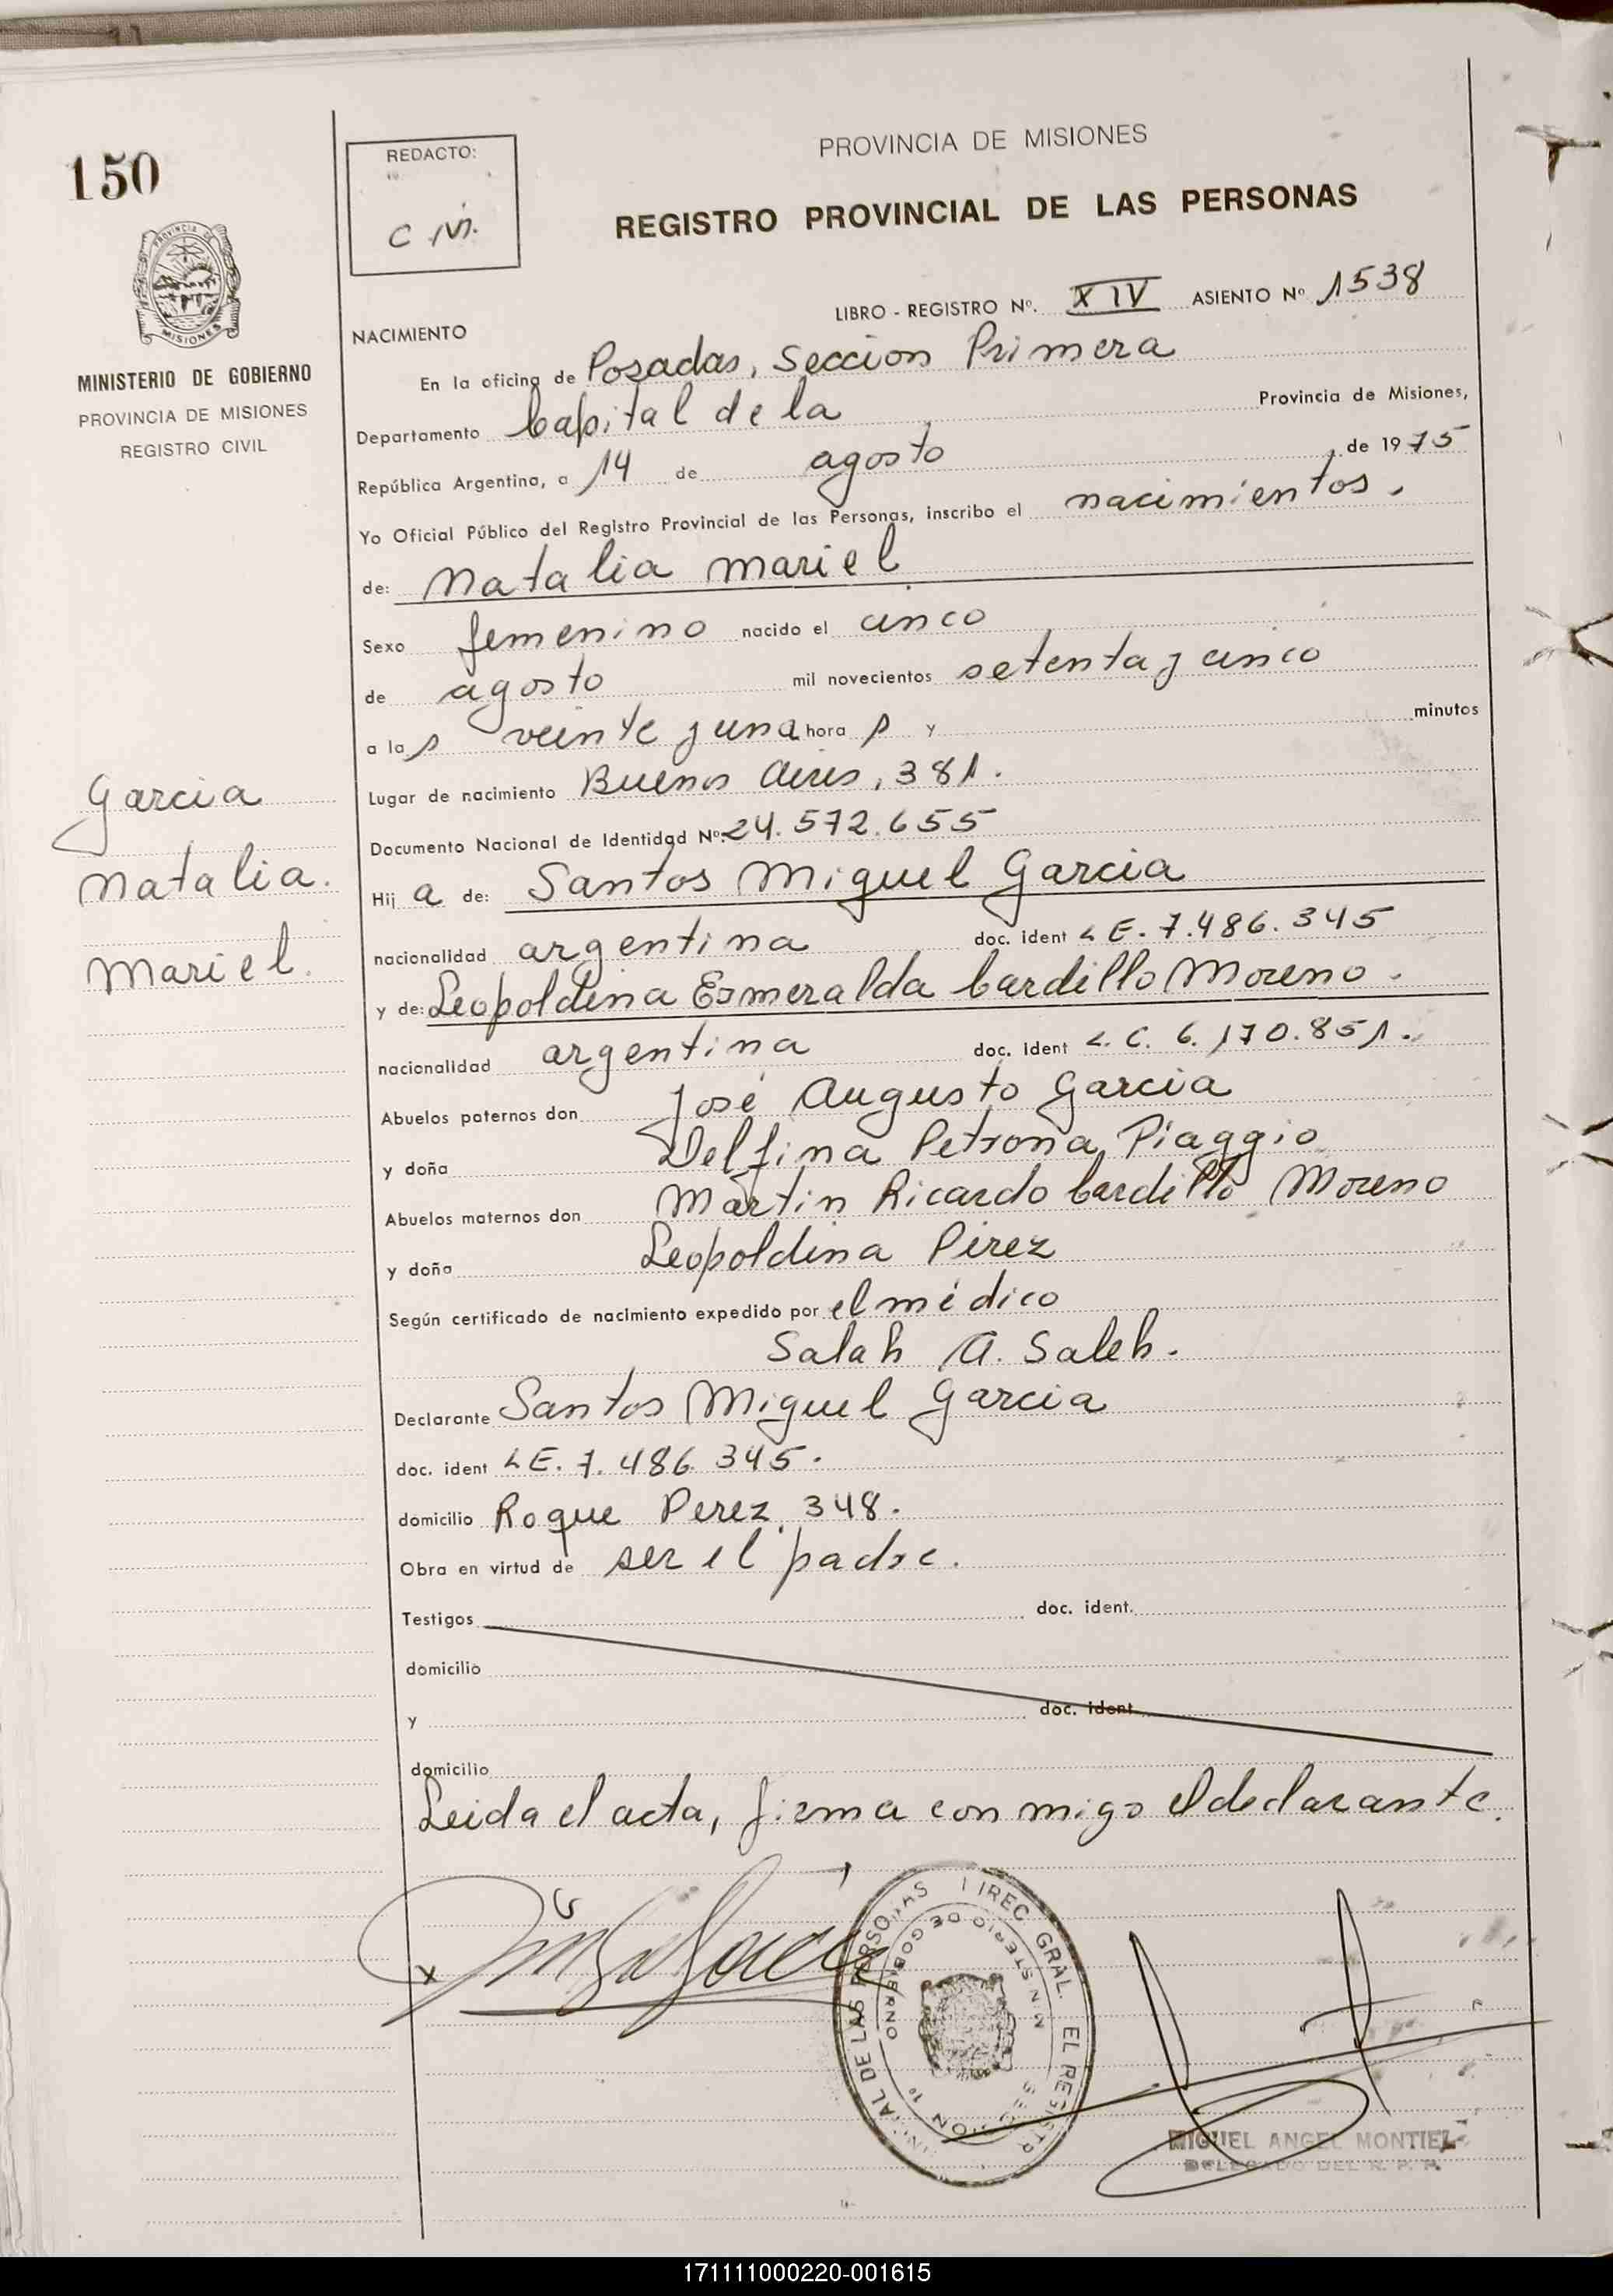 150
REDACTO:
C M.
PROVINCIA DE MISIONES
REGISTRO PROVINCIAL DE LAS PERSONAS
PROVINCIA DE
MISIONES
MINISTERIO DE GOBIERNO
PROVINCIA DE MISIONES
REGISTRO CIVIL
LIBRO - REGISTRO Nº. XIV ASIENTO Nº 1538
NACIMIENTO
En la oficina de Posadas, Seccion Primera
Departamento Capital de la Provincia de Misiones,
República Argentina, a 14 de agosto de 1975
Yo Oficial Público del Registro Provincial de las Personas, inscribo el nacimientos.
de: Natalia Mariel
Sexo femenino nacido el cinco
de agosto mil novecientos setenta y cinco
a las veinte y una horas y minutos
Lugar de nacimiento Buenos Aires, 381.
Documento Nacional de Identidad Nº. 24.572.655
Hija de: Santos Miguel Garcia
nacionalidad argentina doc. ident L E. 7.486.345
y de: Leopoldina Esmeralda Cardillo Moreno.
nacionalidad argentina doc. Ident L. C. 6.170.851.
Abuelos paternos don José Augusto Garcia
y doña Delfina Petrona Piaggio
Abuelos maternos don Martin Ricardo Cardillo Moreno
y doña Leopoldina Pérez
Según certificado de nacimiento expedido por el médico
Salah A. Saleh.
Declarante Santos Miguel Garcia
doc. ident L E. 7. 486. 345.
domicilio Roque Perez 348.
Obra en virtud de ser el padre.
Testigos doc. ident.
domicilio
y doc. ident
domicilio
Leida el acta, firma conmigo el declarante.
Garcia
Natalia.
Mariel.
MIGUEL ANGEL MONTIEL
DELEGADO DEL R. P. P.
171111000220-001615